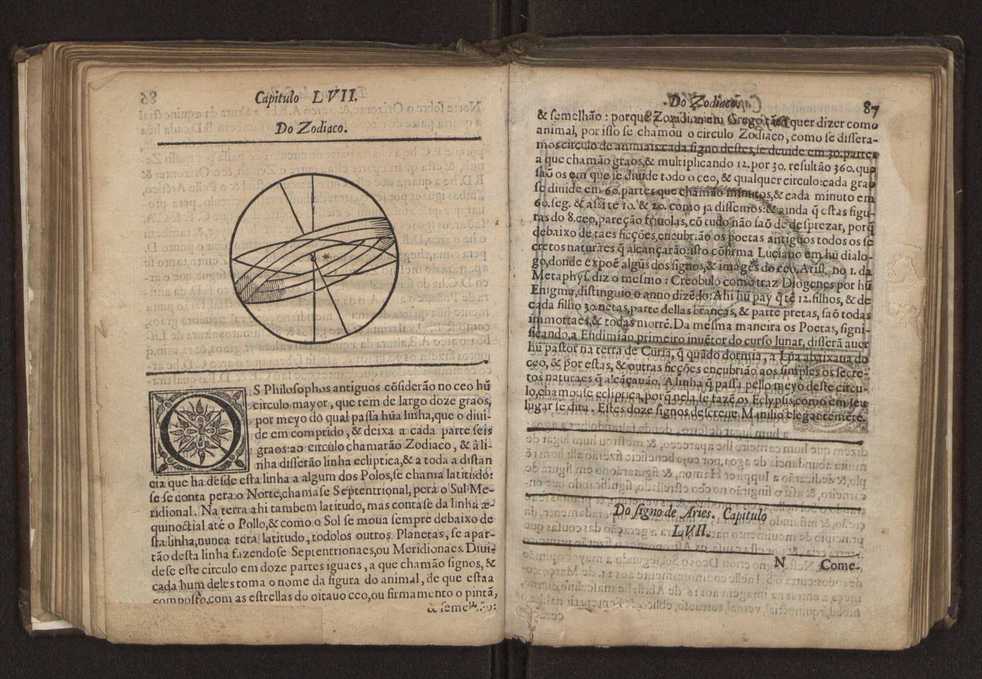 Capitulo LVII.
Do Zodiaco.
OS Philosophos antiguos cõsiderão no ceo hũ
circulo mayor, que tem de largo doze graos,
por meyo do qual passa hũa linha, que o diui-
de em comprido, & deixa a cada parte seis
graos: ao circulo chamarão Zodiaco, & â li-
nha disserão linha ecliptica, & a toda a distan
cia que ha desde esta linha a algum dos Polos, se chama latitudó:
se se conta pera o Norte, chamase Septentrional, pera o Sul Me-
ridional. Na terra ahi tambem latitudo, mas contase da linha æ-
quinoctial até o Pollo, & como o Sol se moua sempre debaixo de
sta linha, nunca terá latitudo, todolos outros Planetas, se apar-
tão desta linha fazendose Septentrionaes, ou Meridionaes. Diui-
dese este circulo em doze partes iguaes, a que chamão signos, &
cada hum deles toma o nome da figura do animal, de que estaa
composto, com as estrellas do oitauo ceo, ou firmamento o pintã,
Do Zodiaco.
87
& semelhão: porque Zodiam em Grego quer dizer como
animal, por isso se chamou o circulo Zodiaco, como se dissera-
mos circulo de animais: cada signo destes, se deuide em 30. partes
a que chamão graos, & multiplicando 12. por 30. resultão 360. que
saõ os em que se diuide todo o ceo, & qualquer circulo: cada grao
se diuide em 60. partes que chamão minutos, & cada minuto em
60. seg. & assi te 10. & 20. como ja dissemos: & ainda q̃ estas figu-
ras do 8. ceo, pareção fabulas, cõ tudo não saõ de desprezar, porq̃
debaixo de taes ficções, encubrirão os poetas antiguos todos os se
cretos naturaes q̃ alcançarão: isto cõfirma Luciano em hũ dialo-
go, donde expoē algũs dos signos, & images do ceo, Arist. no 1. da
Metaphys. diz o mesmo: Creobulo como traz Diogenes por hũ
Enigma, distinguio o anno dizẽdo: Ahi hu pay q̃ tē 12. filhos, & de
cada filho 30. netas, parte dellas brancas, & parte pretas, saõ todas
immortaes, & todas morrẽ. Da mesma maneira os Poetas, signi-
ficando, a Endimião primeiro inuẽtor do curso lunar, disserã auer
hũ pastor na terra de Curia, q̃ quãdo dormia, a Lũa abaixaua do
ceo, & por estas, & outras ficções encubrião aos simples os secre-
tos naturaes q̃ alcãçauão. A linha q̃ passa pello meyo deste circu-
lo, chamouse ecliptica, porq̃ nela se fazẽ os Eclypsis, como em seu
lugar se dira. Estes doze signos descreue Manilio elegantemẽte.
Do signo de Aries. Capitulo
LVII.
N Come-